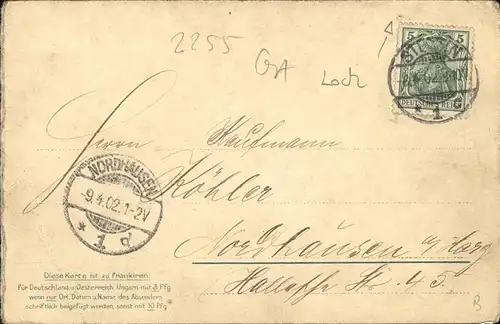 2255
Ost
Loch
5 5
DEUTSCHES REICH
STETTIN
1
Herrn Kaufmann
Köhler
Nordhausen a/Harz
Hallesche Str. 45.
NORDHAUSEN
-9.4.02.1-2V
* 1 d
Diese Karte ist zu frankiren:
Für Deutschland u. Oesterreich Ungarn mit 5 Pfg
wenn nur Ort, Datum u. Name des Absenders
schriftlich beigefügt werden, sonst mit 10 Pfg
B